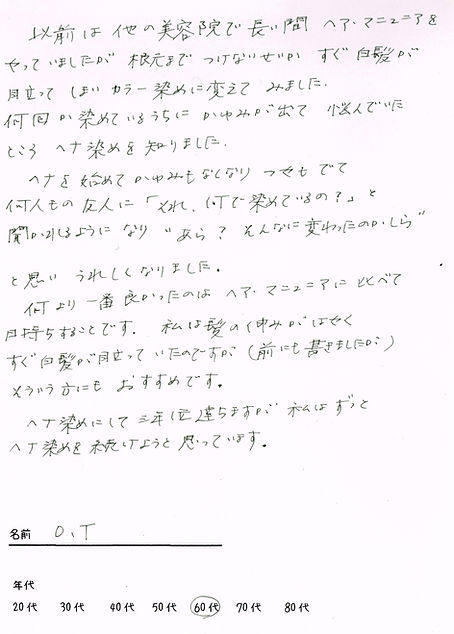 以前は他の美容院で長い間 ヘア・マニュニアを
やっていましたが 根元までつけないせいか すぐ白髪が
目立って しまい カラー染めに変えて みました.
何回か染めているうちに かゆみが出て 悩んでいた
ところ ヘナ染めを知りました.
ヘナを始めて かゆみもなくなり つやもでて
何人もの友人に 「それ、何で染めているの?」と
聞かれるように なり "あら? そんなに変わったのかしら"
と思い うれしくなりました。
何より一番良かったのは ヘア・マニュニアに比べて
日持ちすることです。 私は髪の伸みがはやく
すぐ白髪が目立って いたのですが (前にも書きましたが)
そういう方にも おすすめです。
ヘナ染めにして 三年位違ちますが 私はずっと
ヘナ染めを続けようと思っています。
名前 O、T
年代
20代 30代 40代 50代 60代 70代 80代